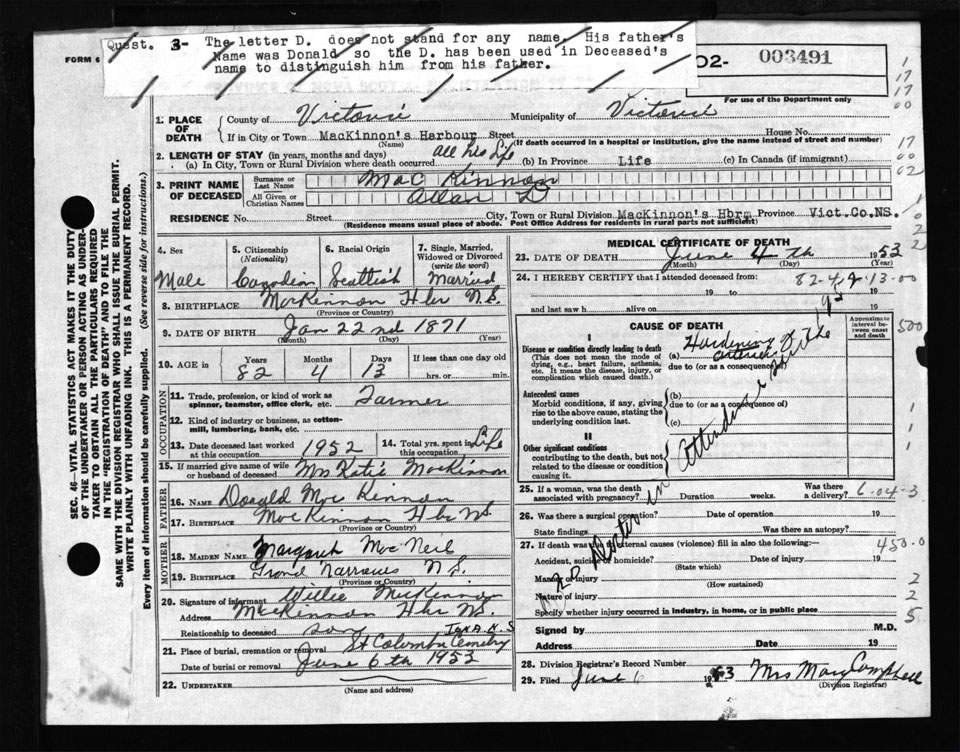 Quest. 3- The letter D. does not stand for any name. His father's
Name was Donald so the D. has been used in Deceased's
name to distinguish him from his father.
FORM 6
02- 003491
For use of the Department only
1. PLACE OF DEATH
County of Victoria Municipality of Victoria
If in City or Town MacKinnon's Harbour Street House No.
(Name) (If death occurred in a hospital or institution, give the name instead of street and number)
2. LENGTH OF STAY (in years, months and days)
(a) In City, Town or Rural Division where death occurred all his life (b) In Province Life (c) In Canada (if immigrant)
3. PRINT NAME OF DECEASED
Surname or Last Name Mac Kinnon
All Given or Christian Names Allan D
RESIDENCE No. Street City, Town or Rural Division MacKinnon's Hbrm Province Vict.Co.NS.
(Residence means usual place of abode. Post Office Address for residents in rural parts not sufficient)
SEC. 46—VITAL STATISTICS ACT MAKES IT THE DUTY
OF THE UNDERTAKER OR PERSON ACTING AS UNDER-
TAKER TO OBTAIN ALL THE PARTICULARS REQUIRED
IN THE "REGISTRATION OF DEATH" AND TO FILE IT
SAME WITH THE DIVISION REGISTRAR WHO SHALL ISSUE THE BURIAL PERMIT.
WRITE PLAINLY WITH UNFADING INK. THIS IS A PERMANENT RECORD.
Every item of information should be carefully supplied. (See reverse side for instructions.)
4. Sex
Male
5. Citizenship
(Nationality)
Canadian
6. Racial Origin
Scottish
7. Single, Married, Widowed or Divorced
(write the word)
Married
8. BIRTHPLACE MacKinnon Hbr N.S.
(Province or Country)
9. DATE OF BIRTH Jan 22nd 1871
(Month) (Day) (Year)
10. AGE
Years 82 Months 4 Days 13
If less than one day old
hrs. or min.
OCCUPATION
11. Trade, profession, or kind of work as
spinner, teamster, office clerk, etc. Farmer
12. Kind of industry or business, as cotton-
mill, lumbering, bank, etc.
13. Date deceased last worked
at this occupation 1952
14. Total yrs. spent in
this occupation Life
15. If married give name of wife
or husband of deceased Mrs Katie MacKinnon
FATHER
16. NAME Donald Mac Kinnon
17. BIRTHPLACE MacKinnon Hbr NS
(Province or Country)
MOTHER
18. MAIDEN NAME Margaret MacNeil
19. BIRTHPLACE Grand Narrows N.S.
(Province or Country)
20. Signature of informant Willie MacKinnon
Address MacKinnon Hbr NS.
Relationship to deceased son
21. Place of burial, cremation or removal St Columba Cemetry Iona N.S
Date of burial or removal June 6th 1953
22. UNDERTAKER
(Name and address)
MEDICAL CERTIFICATE OF DEATH
23. DATE OF DEATH June 4th 1953
(Month) (Day)
24. I HEREBY CERTIFY that I attended deceased from: 82-4-13-00
19 to 19
and last saw h alive on 19
CAUSE OF DEATH
Approximate interval between onset and death
I
Disease or condition directly leading to death
(This does not mean the mode of
dying, e.g., heart failure, asthenia,
etc. It means the disease, injury, or
complication which caused death.)
(a) Hardening of the arteries
due to (or as a consequence of)
Antecedent causes
Morbid conditions, if any, giving
rise to the above cause, stating the
underlying condition last.
(b)
due to (or as a consequence of)
(c)
II
Other significant conditions
contributing to the death, but not
related to the disease or condition
causing it.
No Doctor in Attendance
25. If a woman, was the death
associated with pregnancy? Duration weeks. Was there
a delivery? 6-04-3
26. Was there a surgical operation? Date of operation 19
State findings Was there an autopsy?
27. If death was due to external causes (violence) fill in also the following:—
450.0
Accident, suicide or homicide? Date of injury 19
(State which)
Manner of injury
(How sustained)
Nature of injury
Specify whether injury occurred in industry, in home, or in public place
Signed by M.D.
Address Date 19
28. Division Registrar's Record Number
29. Filed June 6 1953 Mrs Mary Campbell
(Division Registrar)